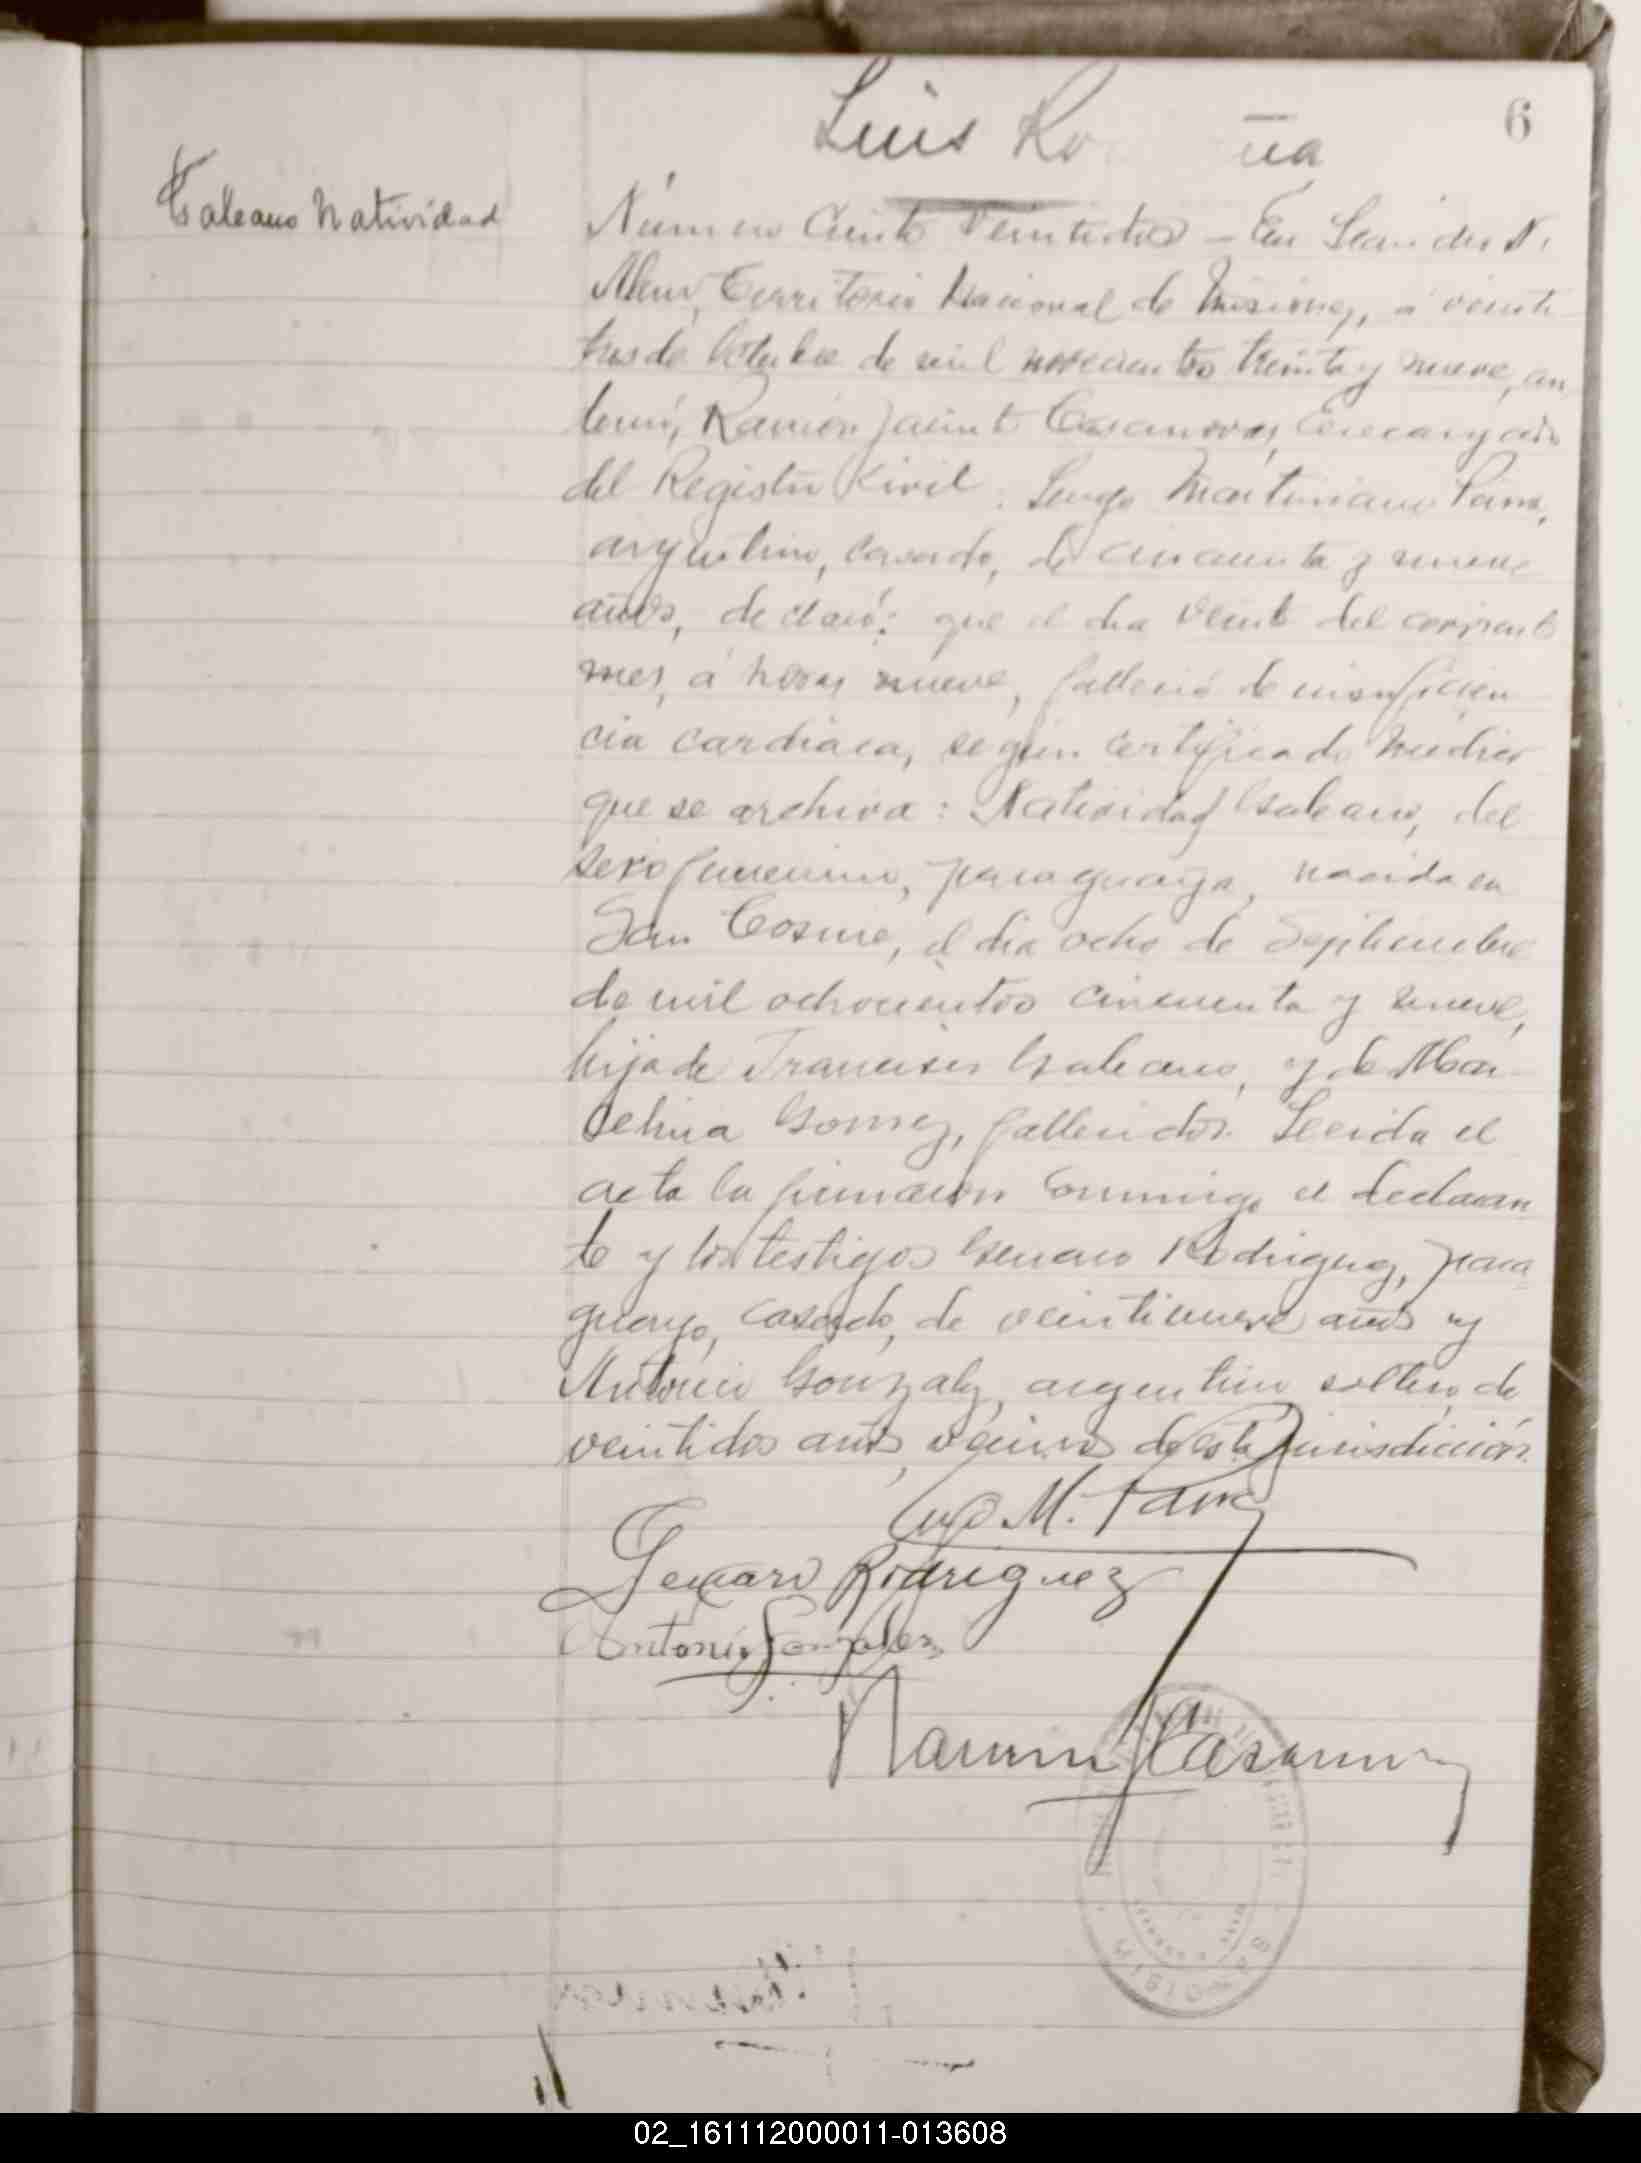 Luis Ro ua
6
Galeano Natividad
Número Ciento Veintidos - En Leandro N.
Alem, Territorio Nacional de Misiones, a veinti
tres de Octubre de mil novecientos treinta y nueve, an
te mí, Ramón Jacinto Casanova, Encargado
del Registro Civil: Lugo Martiniano
argentino, casado, de cincuenta y nueve
años, declaró: que el dia veinte del corriente
mes, á horas nueve, falleció de insuficien
cia cardiaca, según certificado médico
que se archiva: Natividad Galeano, del
sexo femenino, paraguaya, nacida en
San Cosme, el dia ocho de Septiembre
de mil ochocientos cincuenta y nueve,
hija de Francisco Galeano, y de Mar
celina Gomez, fallecidos. Leida el
acta la firmaron conmigo el declaran
te y los testigos Genaro Rodriguez, para
guayo, casado, de veintinueve años y
Antonio Gonzalez, argentino soltero, de
veintidos años, vecinos de esta jurisdicción.
Lugo M.
Genaro Rodriguez
Antonio Gonzalez
Ramón J Casanova
MISIONES
02_161112000011-013608